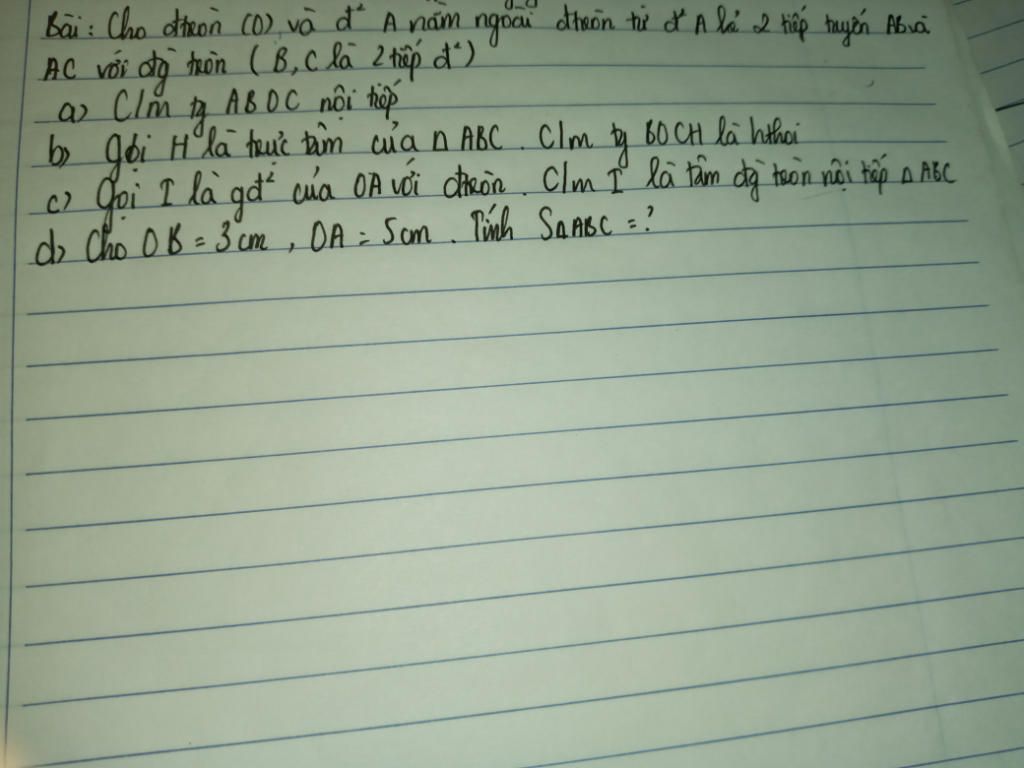 Bài: Cho đtròn (O) và đ² A nằm ngoài đtròn từ đ² A kẻ 2 tiếp tuyến AB và
AC với đg tròn (B, C là 2 tiếp đ²)
a) C/m tg ABOC nội tiếp
b) gọi H là trực tâm của Δ ABC. C/m tg BOCH là hthoi
c) Gọi I là gđ² của OA với đtròn. C/m I là tâm đg tròn nội tiếp Δ ABC
d) Cho OB = 3 cm, OA = 5cm. Tính SΔABC = ?